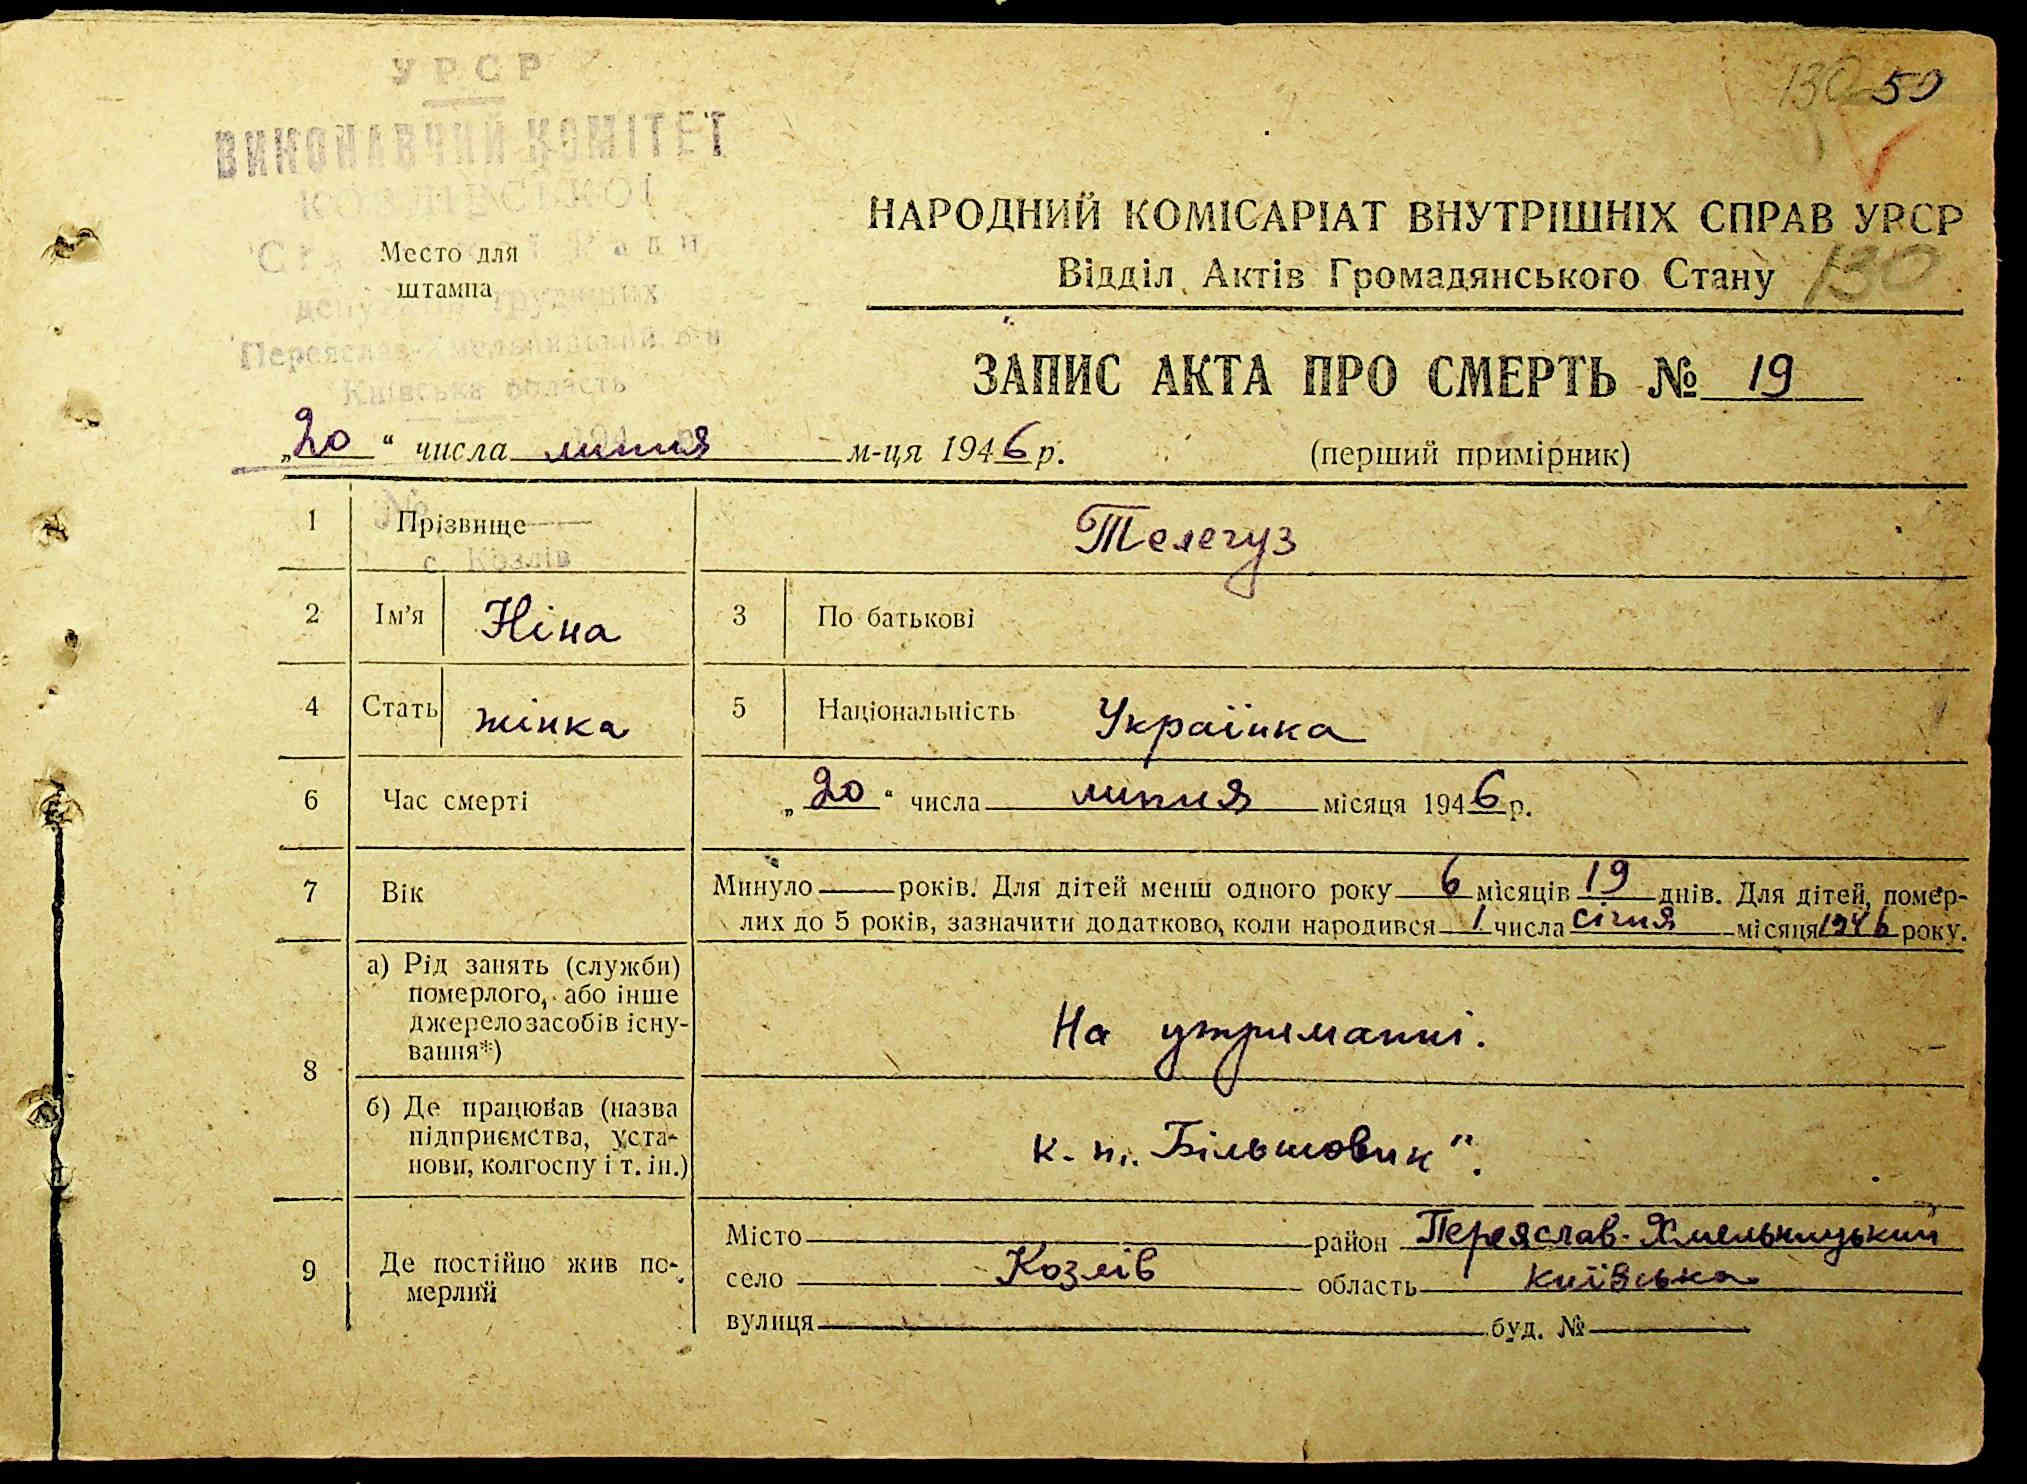 УРСР
ВИКОНАВЧИЙ КОМІТЕТ
КОЗЛІВСЬКОЇ
130 59
НАРОДНИЙ КОМІСАРІАТ ВНУТРІШНІХ СПРАВ УРСР
Место для
штампа
Відділ Актів Громадянського Стану 130
депутатів трудящих
Переяслав-Хмельницький р-н
Київська область
ЗАПИС АКТА ПРО СМЕРТЬ № 19
„20" числа липня м-ця 1946 р.
(перший примірник)
1 Прізвище Телегуз
с. Козлів
2 Ім'я Ніна 3 По батькові
4 Стать жінка 5 Національність Українка
6 Час смерті „20" числа липня місяця 1946 р.
7 Вік Минуло — років. Для дітей менш одного року 6 місяців 19 днів. Для дітей, помер-
лих до 5 років, зазначити додатково, коли народився 1 числа січня місяця 1946 року.
8 а) Рід занять (служби)
померлого, або інше
джерело засобів існу-
вання*)
На утриманні.
б) Де працював (назва
підприємства, уста-
нови, колгоспу і т. ін.)
к-п „Більшовик".
9 Де постійно жив по-
мерлий
Місто район Переяслав-Хмельницький
село Козлів область київська
вулиця буд. №